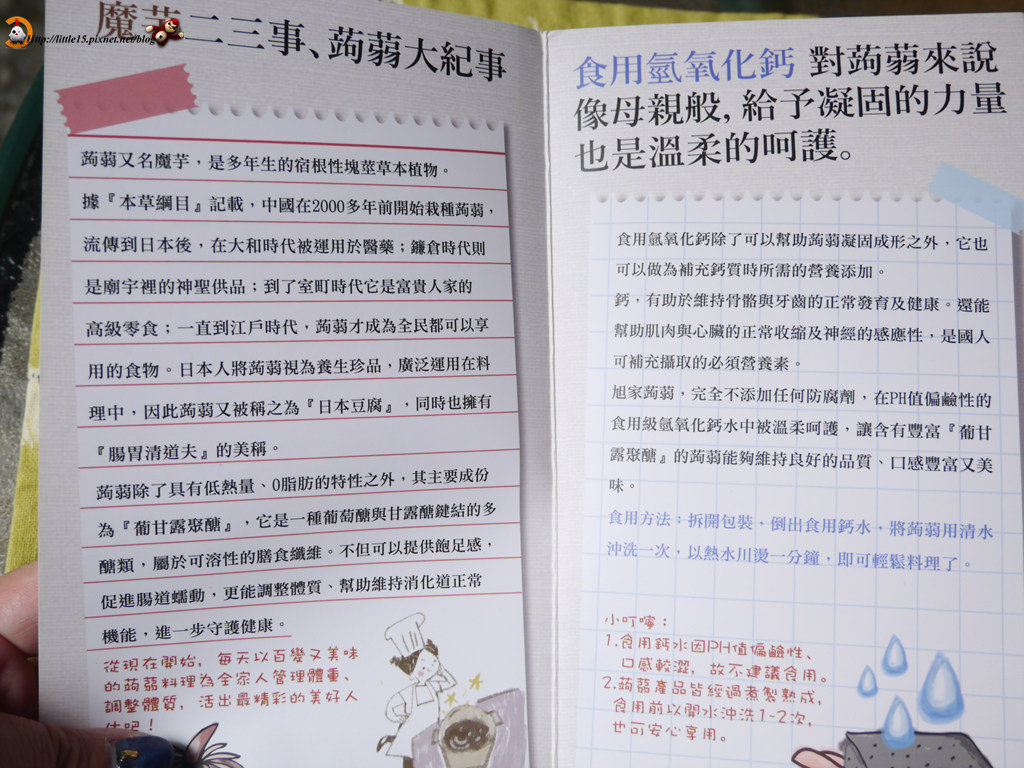 Http://little15.pixnet.net/blog
魔芋二三事、蒟蒻大紀事
蒟蒻又名魔芋，是多年生的宿根性塊莖草本植物。
據『本草綱目』記載，中國在2000多年前開始栽種蒟蒻，
流傳到日本後，在大和時代被運用於醫藥；鎌倉時代則
是廟宇裡的神聖供品；到了室町時代它是富貴人家的
高級零食；一直到江戶時代，蒟蒻才成為全民都可以享
用的食物。日本人將蒟蒻視為養生珍品，廣泛運用在料
理中，因此蒟蒻又被稱之為『日本豆腐』，同時也擁有
『腸胃清道夫』的美稱。
蒟蒻除了具有低熱量、0脂肪的特性之外，其主要成份
為『葡甘露聚醣』，它是一種葡萄醣與甘露醣鍵結的多
醣類，屬於可溶性的膳食纖維。不但可以提供飽足感，
促進腸道蠕動，更能調整體質、幫助維持消化道正常
機能，進一步守護健康。
從現在開始，每天以百變又美味
的蒟蒻料理為全家人管理體重、
調整體質，活出最精彩的美好人
生吧！
食用氫氧化鈣 對蒟蒻來說
像母親般，給予凝固的力量
也是溫柔的呵護。
食用氫氧化鈣除了可以幫助蒟蒻凝固成形之外，它也
可以做為補充鈣質時所需的營養添加。
鈣，有助於維持骨骼與牙齒的正常發育及健康。還能
幫助肌肉與心臟的正常收縮及神經的感應性，是國人
可補充攝取的必須營養素。
旭家蒟蒻，完全不添加任何防腐劑，在PH值偏鹼性的
食用級氫氧化鈣水中被溫柔呵護，讓含有豐富『葡甘
露聚醣』的蒟蒻能夠維持良好的品質、口感豐富又美
味。
食用方法：拆開包裝，倒出食用鈣水，將蒟蒻用清水
沖洗一次，以熱水川燙一分鐘，即可輕鬆料理了。
小叮嚀：
1.食用鈣水因PH值偏鹼性、
口感較澀，故不建議食用。
2.蒟蒻產品皆經過煮製熟成，
食用前以開水沖洗1~2次，
也可安心享用。